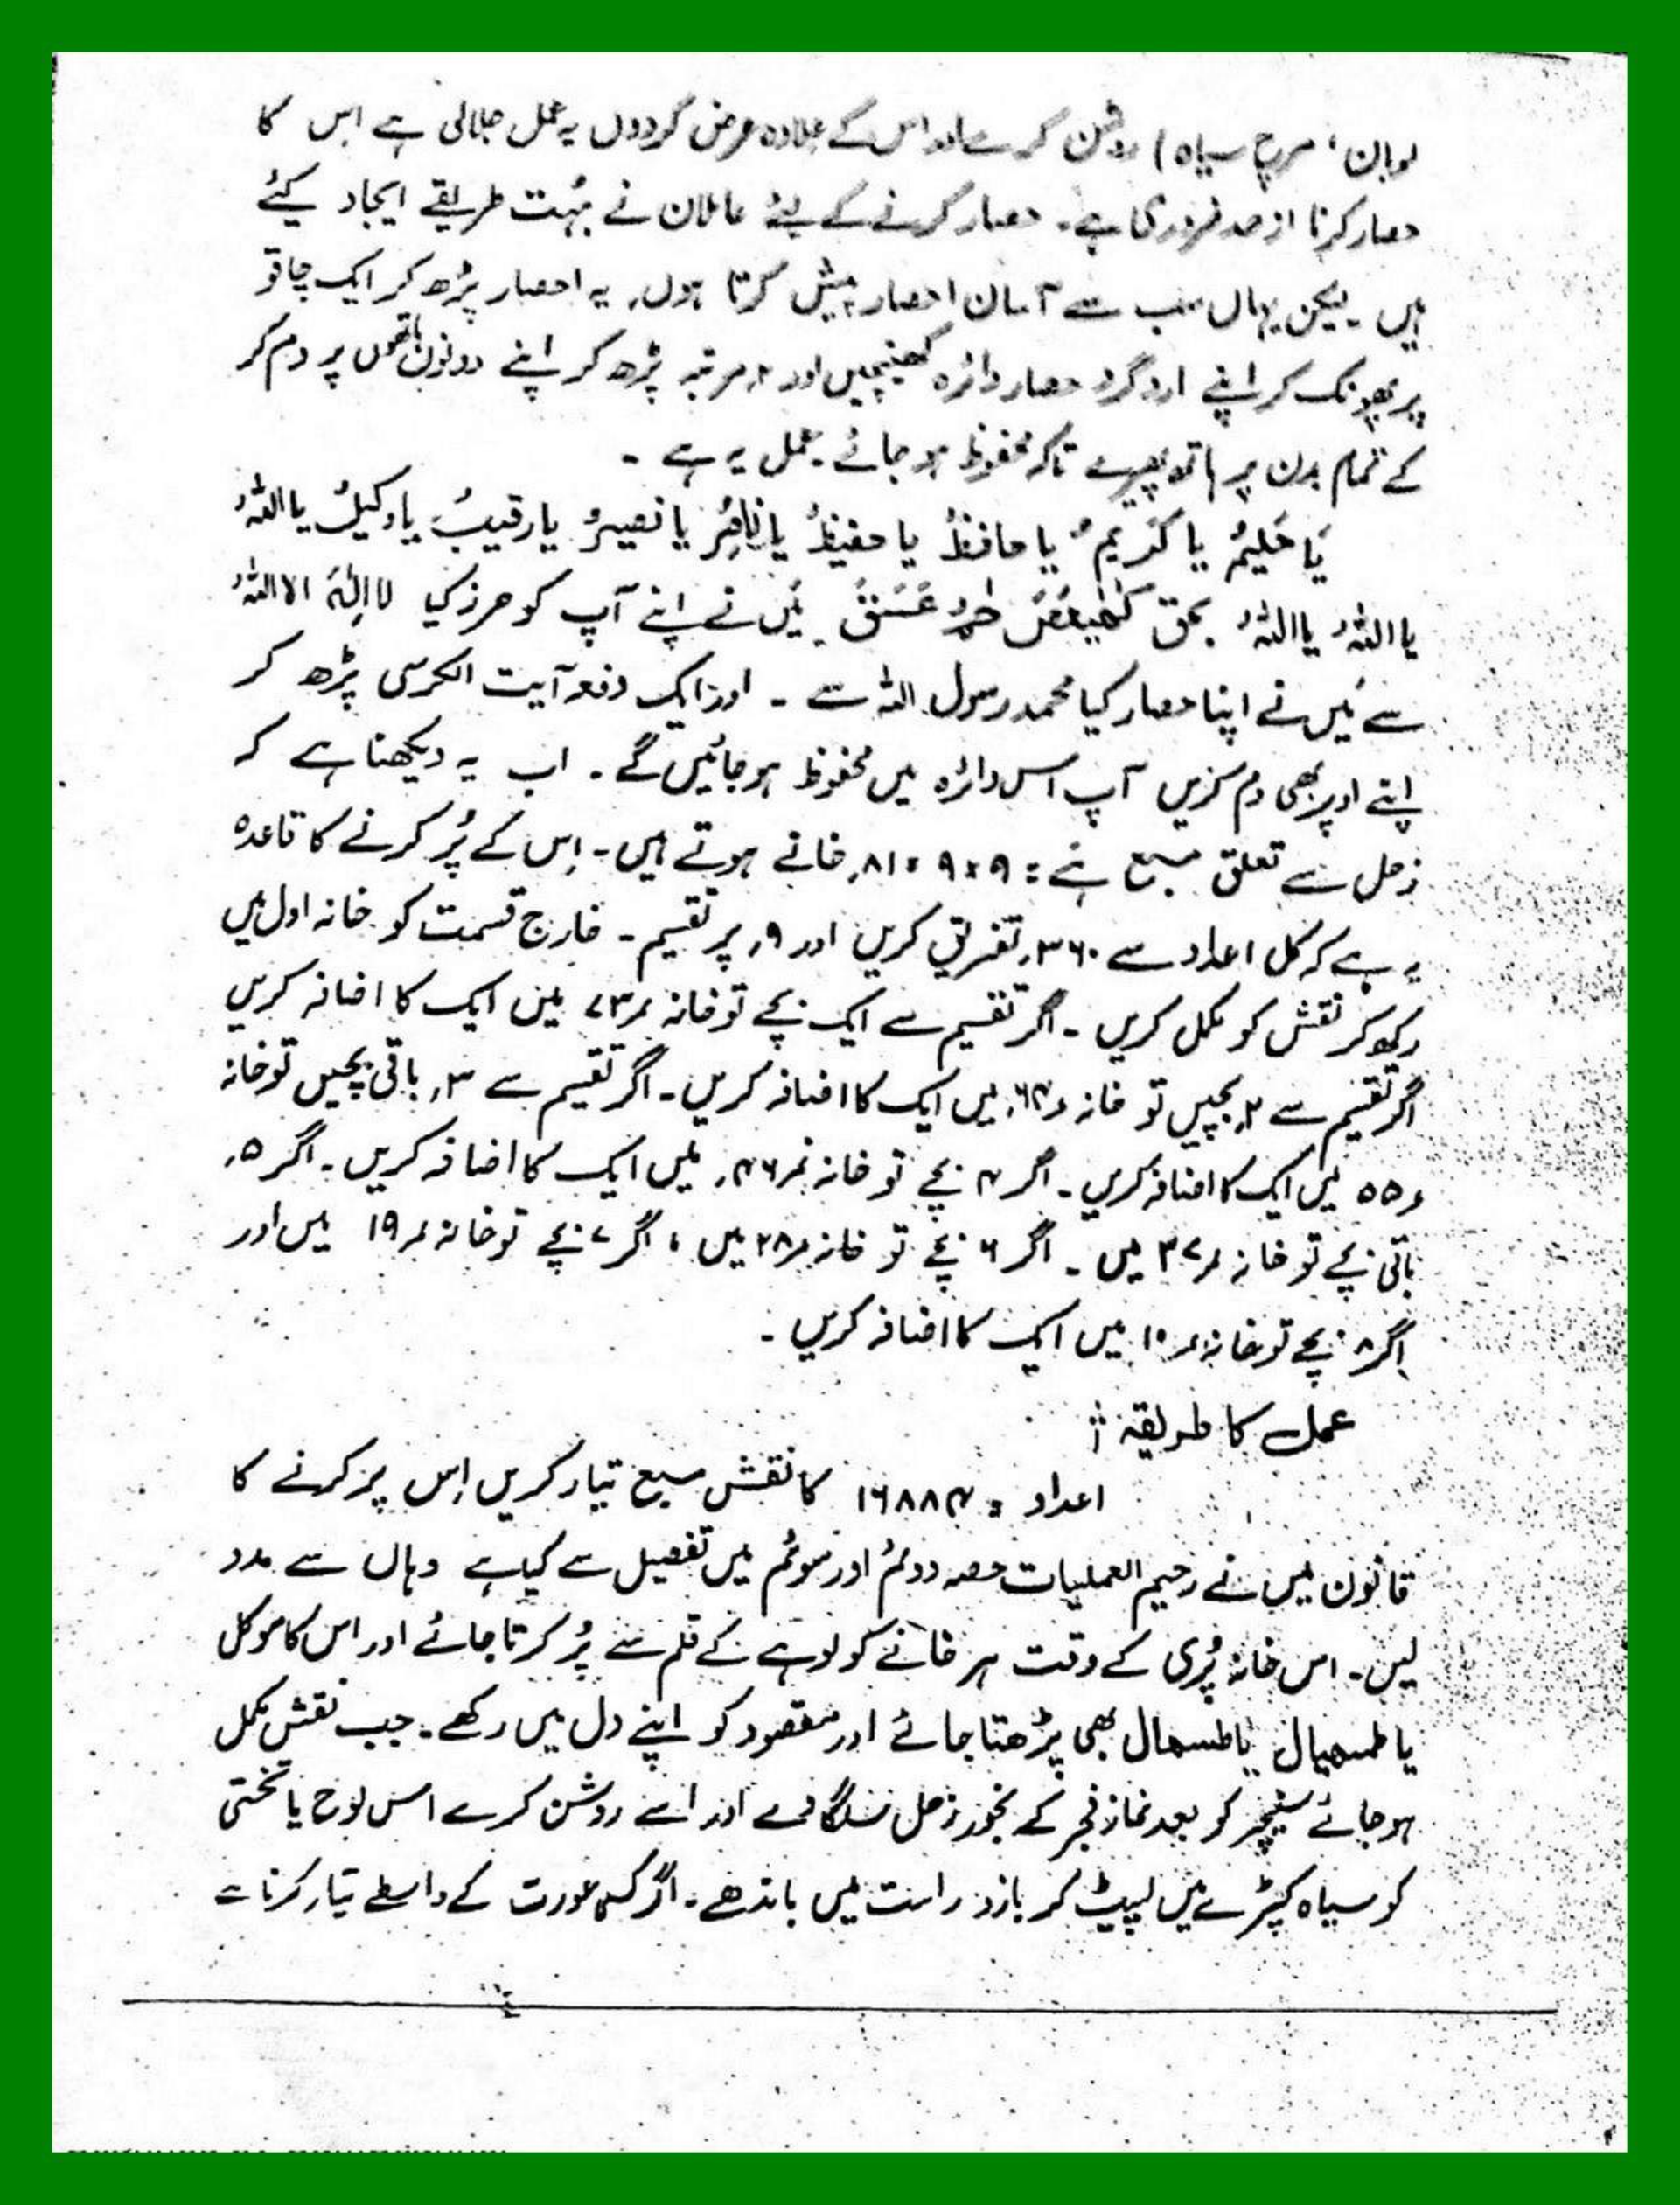 لوبان، مرچ سیاہ) روشن کرے اور اس کے علاوہ عرض کردوں یہ عمل جلالی ہے اس کا
حصار کرنا ازحد ضروری ہے۔ حصار کرنے کے لئے عاملان نے بہت طریقے ایجاد کیئے
ہیں۔ لیکن یہاں سب سے آسان احصار پیش کرتا ہوں، یہ احصار پڑھ کر ایک چاقو
پر پھونک کر اپنے اردگرد حصار دائرہ کھینچیں اور مرتبہ پڑھ کر اپنے دونوں ہاتھوں پر دم کر
کے تمام بدن پر ہاتھ پھیرے تاکہ محفوظ ہو جائے عمل یہ ہے ۔
یَا حَلِیمُ یا کَرِیمُ یا حافظُ یا حفیظُ یا ناصِرُ یا نصیرُ یا رقیبُ یا وکیلُ یا اللہُ
یا اللہُ یا اللہُ بحق کٓھٰیٰعٓصٓ حٰمٓ عٓسٓقٓ مَیں نے اپنے آپ کو حرز کیا لا اِلٰہَ الا اللہُ
سے مَیں نے اپنا حصار کیا محمد رسول اللہ سے ۔ اور ایک دفعہ آیت الکرسی پڑھ کر
اپنے اوپر بھی دم کریں آپ اس دائرہ میں محفوظ ہو جائیں گے ۔ اب یہ دیکھنا ہے کہ
زحل سے تعلق مسبع ہے: ۹×۹=۸۱ خانے ہوتے ہیں ۔ اِس کے پُر کرنے کا قاعدہ
یہ ہے کہ کل اعداد سے ۳۶۰ تفریق کریں اور ۹ پر تقسیم ۔ خارج قسمت کو خانہ اول میں
رکھ کر نقش کو مکمل کریں ۔ اگر تقسیم سے ایک بچے تو خانہ نمبر ۷۳ میں ایک کا اضافہ کریں
اگر تقسیم سے ۲ بچیں تو خانہ ۶۴ میں ایک کا اضافہ کریں ۔ اگر تقسیم سے ۳ باقی بچیں تو خانہ
۵۵ میں ایک کا اضافہ کریں ۔ اگر ۴ بچے تو خانہ نمبر ۴۶ میں ایک کا اضافہ کریں ۔ اگر ۵
باقی بچے تو خانہ نمبر ۳۷ میں ۔ اگر ۶ بچے تو خانہ نمبر ۲۸ میں ، اگر ۷ بچے تو خانہ نمبر ۱۹ میں اور
اگر ۸ بچے تو خانہ نمبر ۱۰ میں ایک کا اضافہ کریں ۔
عمل کا طریقہ :
اعداد = ۱۶۸۸۴ کا نقش مسبع تیار کریں اِس پر کرنے کا
قانون میں نے رحیم العملیات حصہ دوئم اور سوئم میں تفصیل سے کیا ہے وہاں سے مدد
لیں ۔ اس خانہ پُری کے وقت ہر خانے کو لوہے کے قلم سے پُر کرتا جائے اور اس کا موکل
یا طسھیال یا طسھال بھی پڑھتا جائے اور مقصود کو اپنے دل میں رکھے ۔ جب نقش مکمل
ہو جائے سنیچر کو بعد نماز فجر کے بخور زحل سلگاوے اور اسے روشن کرے اس لوح یا تختی
کو سیاہ کپڑے میں لپیٹ کر بازو راست میں باندھے ۔ اگر کسی عورت کے واسطے تیار کرنا ہے